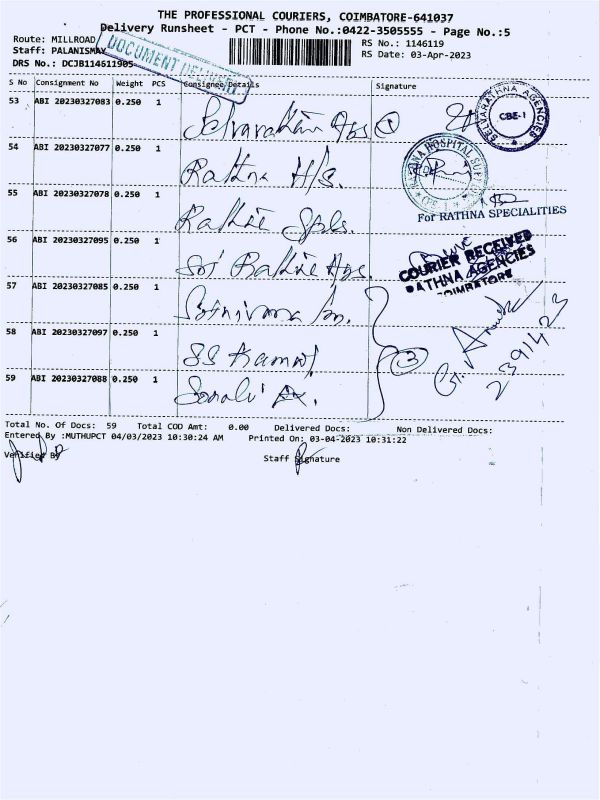 THE PROFESSIONAL COURIERS, COIMBATORE-641037
Delivery Runsheet - PCT - Phone No.:0422-3505555 - Page No.:5
Route: MILLROAD
RS No.: 1146119
Staff: PALANISMAY
RS Date: 03-Apr-2023
DRS No.: DCJB114611905
DOCUMENT DELIVERY
S No Consignment No Weight PCS Consignee Details Signature
53 ABI 20230327083 0.250 1
Selvarathna Ags 1
SELVARATHNA AGENCIES
CBE-1
54 ABI 20230327077 0.250 1
Rathna H/s.
RATHNA HOSPITAL
55 ABI 20230327078 0.250 1
Rathna Spls.
For RATHNA SPECIALITIES
56 ABI 20230327095 0.250 1
Sri Rathna Ags.
COURIER RECEIVED
RATHNA AGENCIES
COIMBATORE
57 ABI 20230327085 0.250 1
Srinivasa
58 ABI 20230327097 0.250 1
SS
3
59 ABI 20230327088 0.250 1
Total No. Of Docs: 59 Total COD Amt: 0.00 Delivered Docs: Non Delivered Docs:
Entered By :MUTHUPCT 04/03/2023 10:30:24 AM Printed On: 03-04-2023 10:31:22
Verified By
Staff Signature